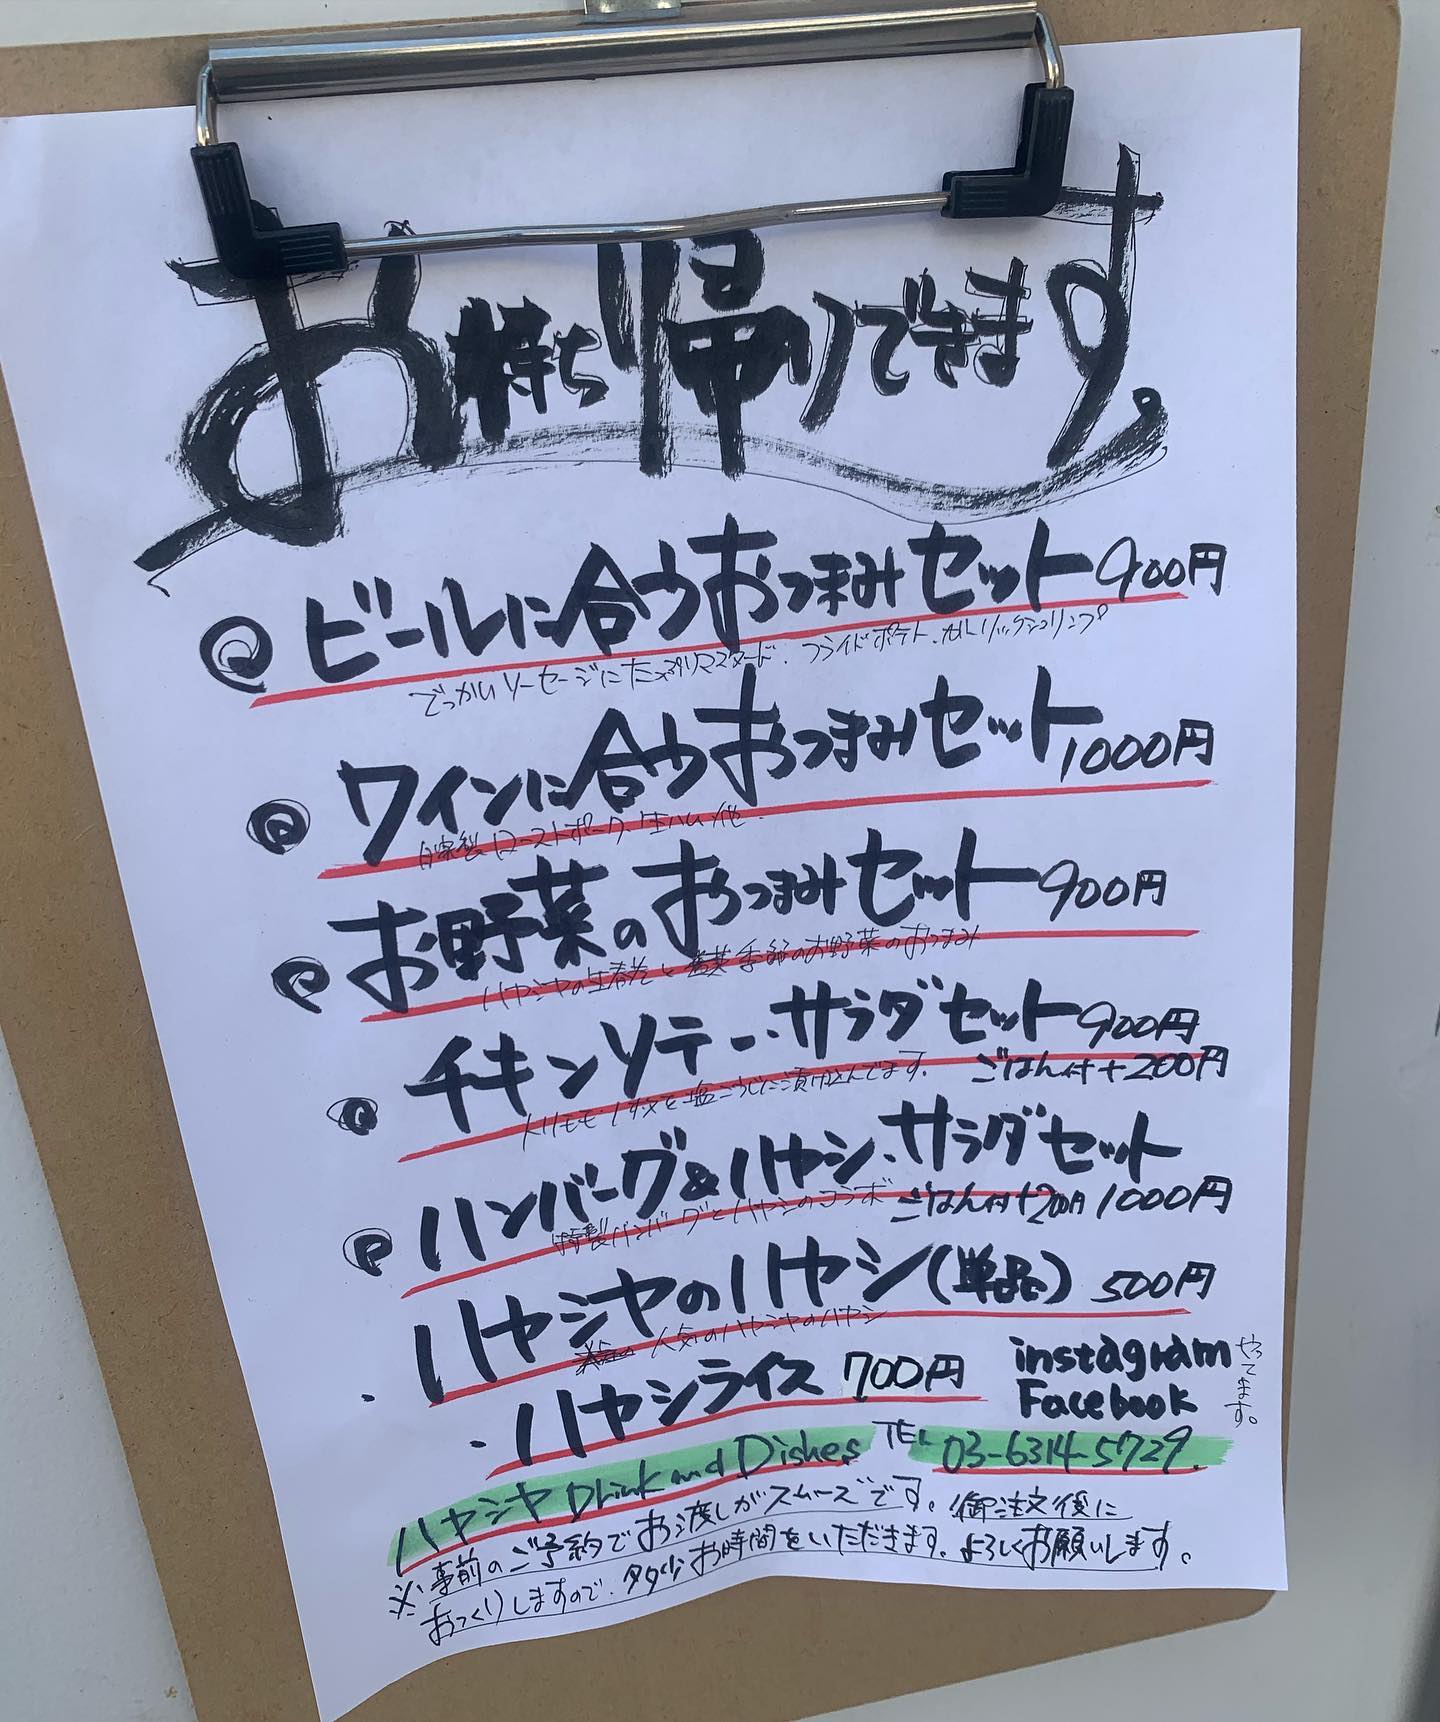 お持ち帰りできます。
ビールに合うおつまみセット900円
でっかいソーセージにたっぷりマスタード、フライドポテト、ガーリックシュリンプ
ワインに合うおつまみセット1000円
自家製ローストポーク、生ハム、他.
お野菜のおつまみセット900円
ハヤシヤの生春巻と 季節のお野菜のおつまみ
チキンソテー、サラダセット900円
トリモモ1枚を塩こうじに漬け込んでます. ごはん付+200円
ハンバーグ&ハヤシ、サラダセット
特製ハンバーグとハヤシのコラボ ごはん付+200円 1000円
ハヤシヤのハヤシ(単品) 500円
人気のハヤシヤのハヤシ
・ハヤシライス 700円
instagram
Facebook
やってます。
ハヤシヤ Drink and Dishes TEL 03-6314-5729.
※事前のご予約でお渡しがスムーズです。御注文後に
おつくりしますので、多少お時間をいただきます。よろしくお願いします。